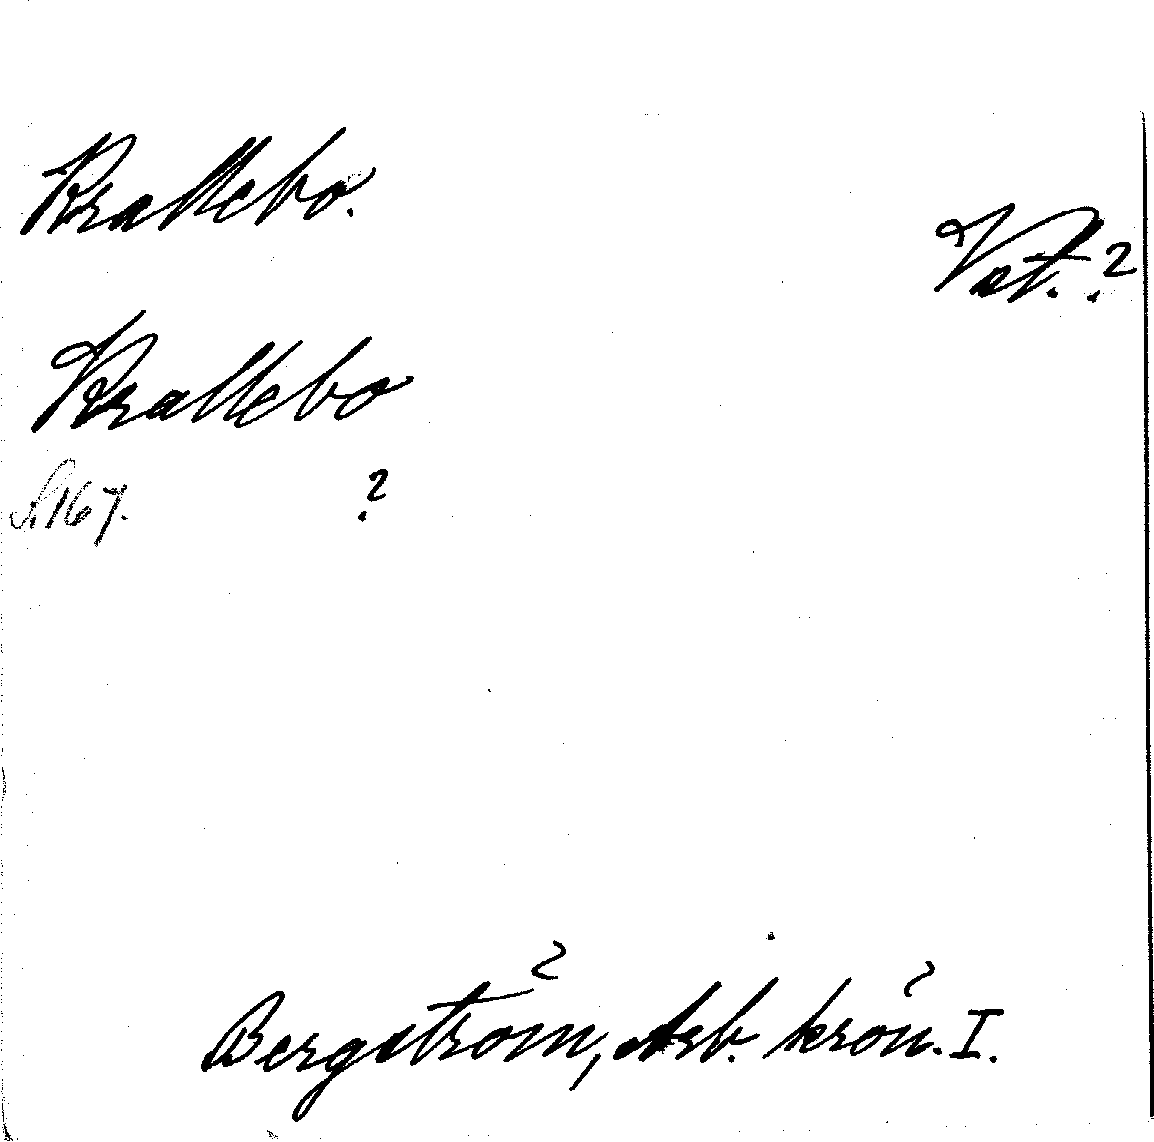 Krallebo.
Vst. ?
Krallebo
S. 167. ?
Bergström, Arb. krön. I.